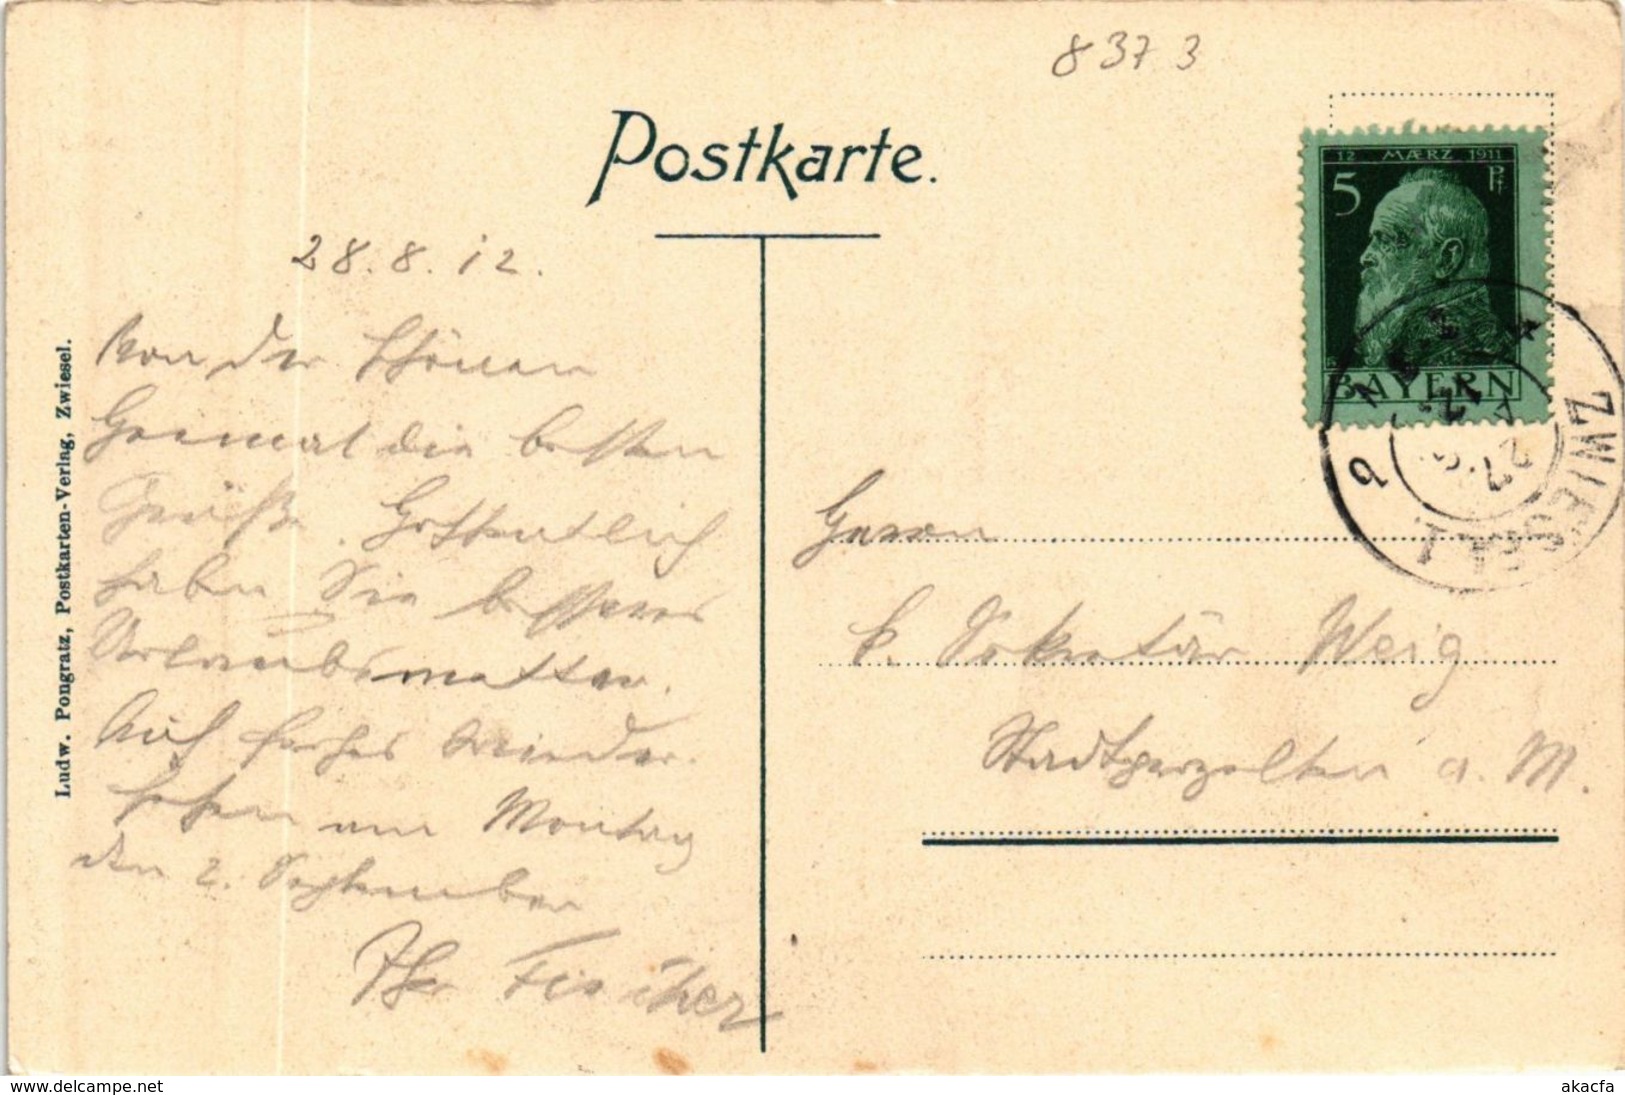 8373
Postkarte.
12 MÆRZ 1911
5 Pf
BAYERN
ZWIESEL 1
27
28.8.12.
Von der schönen
Heimat die besten
Grüße. Hoffentlich
haben Sie besseres
Urlaubswetter.
Auf frohes Wieder-
sehen am Montag
den 2. September
Ihr Fischer
Herrn
k. Sekretär Weig
Stadtprozelten a. M.
Ludw. Pongratz, Postkarten-Verlag, Zwiesel.
www.delcampe.net
akacfa